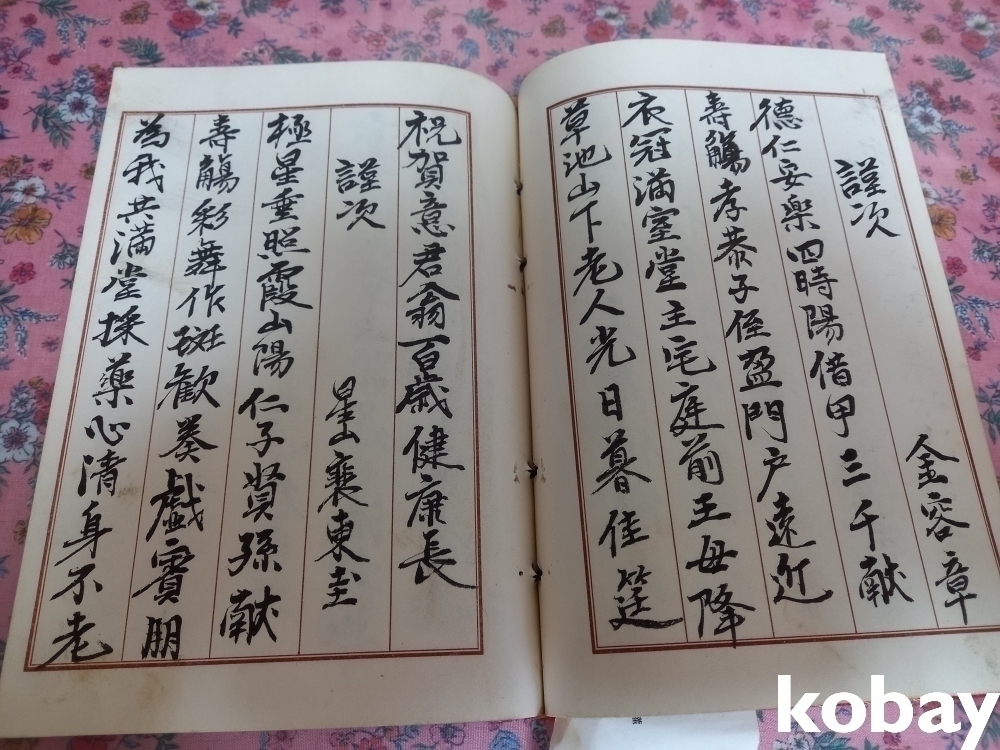 謹次
金容章
德仁安樂四時陽借甲三千獻
壽觴孝恭子侄盈門戶遠近
衣冠滿室堂主宅庭前王母降
草池山下老人光日暮佳筵
祝賀意君翁百歲健康長
謹次
星山裵東奎
極星垂照霞山陽仁子賢孫獻
壽觴彩舞作斑歡養戲賓朋
為我共滿堂採藥心清身不老
kobay